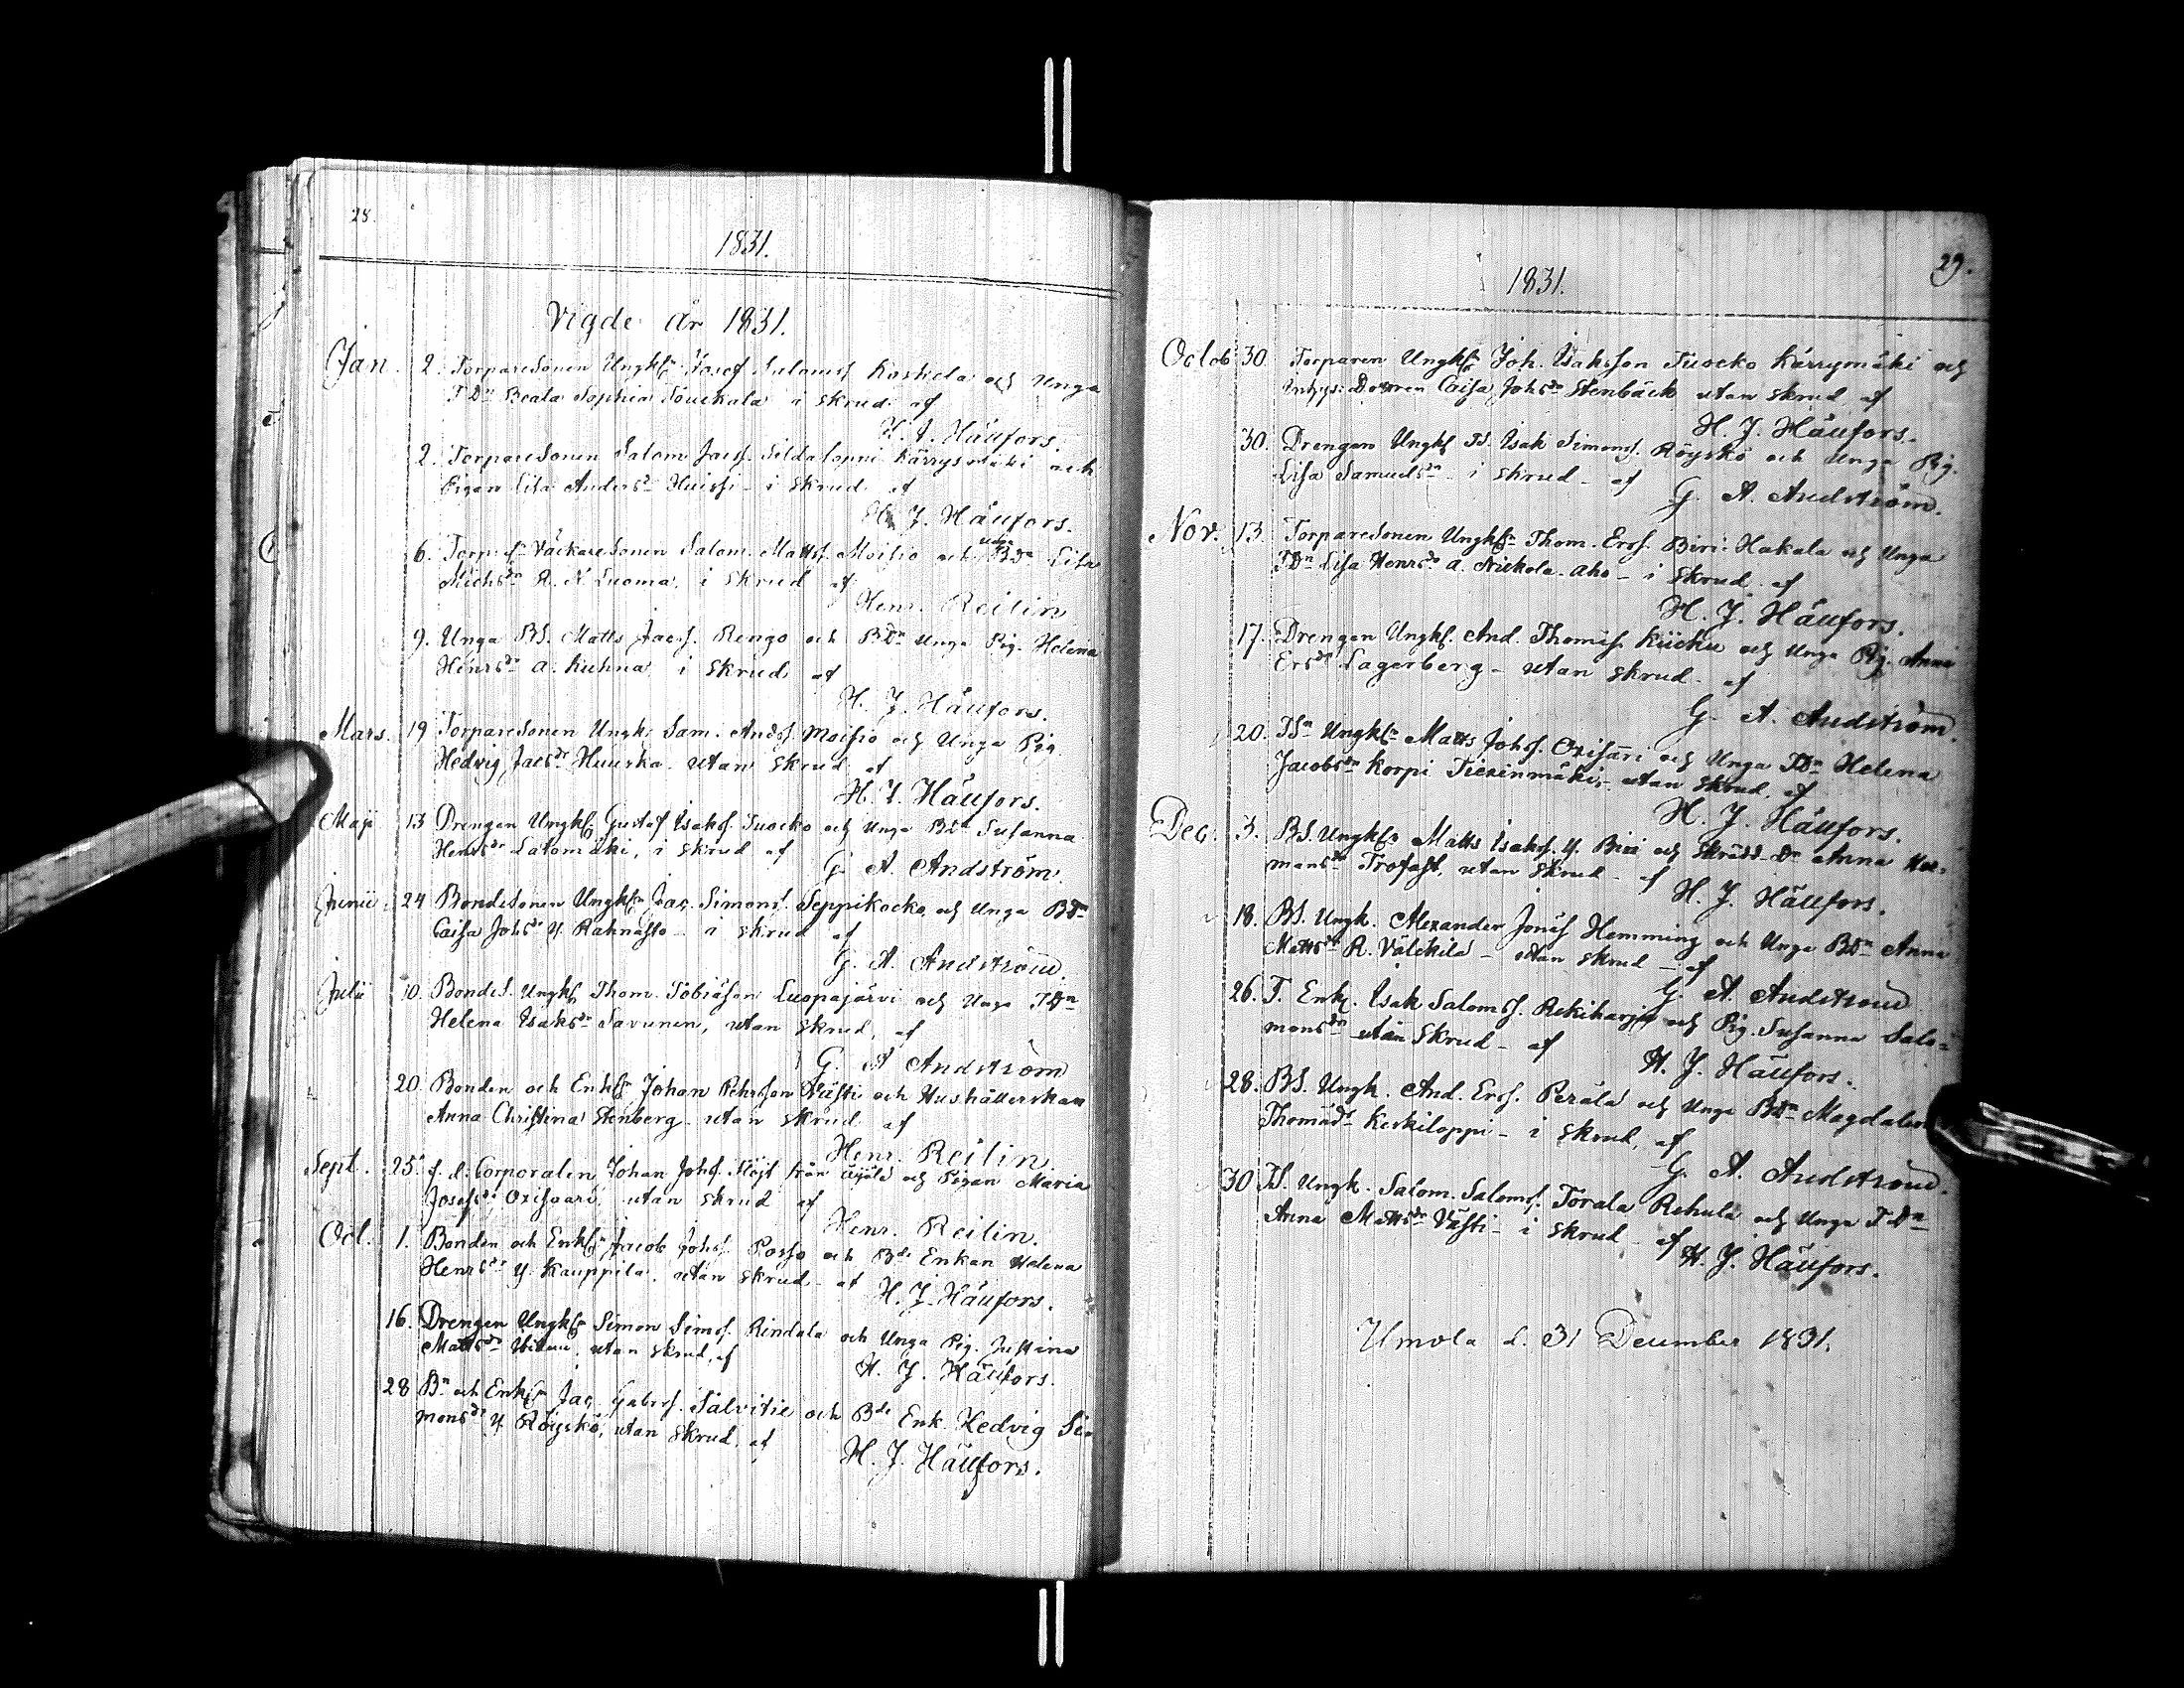 28.
1831.
Vigde år 1831.
Jan. 2. Torparesonen Ungk. Josef Salomss. Koskela och Unga
TDn Beata Sophia Souckala i skrud af
H. J. Häufors.
2. Torparesonen Salom. Jacss. Sildaloppi Kärrysmäki och
Pigan Lisa Andersdr Huissi - i skrud af
H. J. Häufors.
6. Salom. Mattss. Moisio och Unga BDn Lisa
Michsdr R. N. Luoma, i skrud af
Henr. Reilin
9. Unga BS. Matts Jacss. Rengo och BDn Unga Pig. Helena
Henrsdr a. Kuhna i skrud af
H. J. Häufors.
Mars. 19 Torparesonen Ungk. Sam. Andss. Moisio och Unga Pig.
Hedvig Jacsdr Huuska utan skrud af
H. J. Häufors.
Maji 13 Drengen Ungk. Gustaf Isakss. Tuocko och Unga BDn Susanna
Henrsdr Latomäki, i skrud af
G. A. Andström.
Junii 24 Bondesonen Ungk. Jac. Simonss. Seppikocko och Unga BDn
Caisa Johsdr Y. Rahnasto - i skrud af
G. A. Andström.
Julii 10. Bondes. Ungk. Thom. Tobiasson Luopajärvi och Unga TDn
Helena Isaksdr Savunen, utan skrud, af
G. A Andström
20. Bonden och Enkl. Johan Pehrsson Västi och Hushållerskan
Anna Christina Stenberg utan skrud af
Henr. Reilin.
Sept. 25. f. d. Corporalen Johan Johss. Höjt från och Pigan Maria
Josefsdr Oxisvari utan skrud af
Henr. Reilin.
Oct. 1. Bonden och Enkl. Jacob Johss. Posso och Bde Enkan Helena
Henrsdr Y. Kauppila, utan skrud af
H. J. Häufors.
16. Drengen Ungk. Simon Simss. Rindala och Unga Pig. Justina
Mattsdr utan skrud, af
H. J. Häufors.
28 Bn och Enkl. Jac. Gabrss. Salvitie och Bde Enk. Hedvig Si=
monsdr Y. Röyskö, utan skrud, af
H. J. Häufors.
29.
1831.
Octob 30. Torparen Ungk. Joh. Isaksson Tuocko Kärrymäki och
Inhys. Dottren Caisa Johsdr Stenbäck utan skrud af
H. J. Häufors.
30. Drengen Ungk. TS. Isak Simonss. Röyskö och Unga Pig.
Lisa Samuelsdr - i skrud - af
G. A. Andström.
Nov. 13. Torparesonen Ungk. Thom. Erss. Biri Hakala och Unga
TDn Lisa Henrsdr a. Nickola aho - i skrud af
H. J. Häufors.
17. Drengen Ungk. And. Thomss. Kucku och Unga Pig. Anna
Ersdr Lagerberg - utan skrud - af
G. A. Andström.
20. TSn Ungk. Matts Johss. Oxisari och Unga TDn Helena
Jacobsdr Korpi Tiesinmäki, utan skrud, af
H. J. Häufors.
Dec. 3. BS. Ungk. Matts Isakss. Y. Biri och Skrädd. Dr Anna Her=
mansdr Trofast, utan skrud - af
H. J. Häufors.
18. BS. Ungk. Alexander Jonss Hemming och Unga BDn Anna
Mattsdr R. Välckilä - utan skrud - af
G. A. Andström
26. T. Enkl. Isak Salomss. Rekiharju och Pig. Susanna Salo=
monsdr utan skrud - af
H. J. Häufors.
28. BS. Ungk. And. Erss. Perälä och Unga BDn Magdalena
Thomasdr Keskiloppi - i skrud, af
G. A. Andström.
30 TS. Ungk. Salom. Salomss. Torala Rehula och Unga TDn
Anna Mattsdr Västi - i skrud - af
H. J. Häufors.
Ilmola d. 31 December 1831.